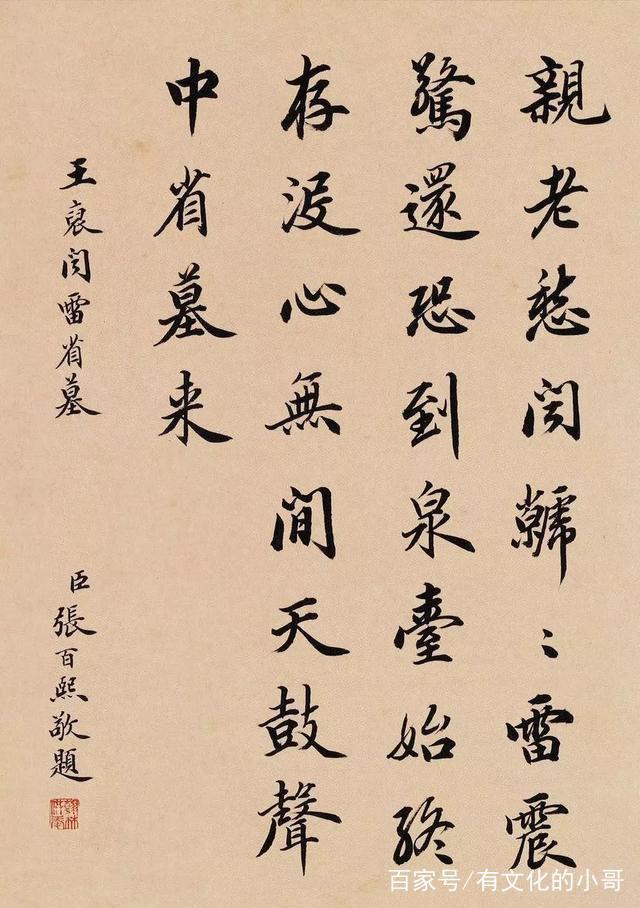 親老愁聞虩〻雷震
驚還恐到泉臺始終
存没心無間天鼓聲
中省墓来
王裒聞雷省墓
臣張百熙敬題
百家号/有文化的小哥